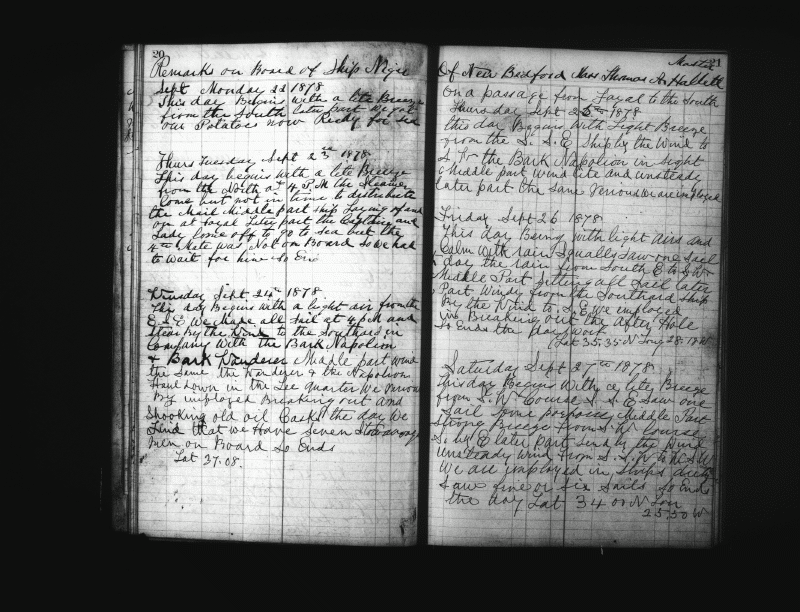 20
Remarks on Board of Ship Niger
Sept Monday 22 1878
This day Begins with a lite Breeze
from the South later part We got
our Potatoes now Ready for sea
Thurs Tuesday Sept 23rd 1878
This day begins with a lite Breeze
from the South at 4 P.M the Steamer
Come but not in time to distribute
the Mail Middle part ship Laying off and
on at Fayal Later part the Captain and
Lady Come off to go to sea but the
4th Mate was Not on Board So We had
to Wait for him So Ends
Sept 24th 1878
This day Begins with a light air from the
E.S.E We Made all Sail at 4 P.M and
Steer By the Wind to the Southard in
Company With the Bark Napoleon
& Bark Wanderer Middle part wind
the Same the Warderer & the Napoleon
Haul down in the Lee quarter We
By imployed Breaking out and
Shooking old oil Casks the day We
Find that we Have Seven Stowaways
Men on Board So Ends
Lat 37.08.
Master 21
Of New Bedford Mass Thomas H. Hallett
On a passage from Fayal to the South
Thursday Sept 25th 1878
this day Begins with Light Breeze
from the S. S. E Ship by the Wind to
the Bark Napoleon in Sight
Middle part wind lite and unsteady
later part the Same
Friday Sept 26 1878
This day Being with light airs and
Calm With rain Squally Saw one Sail
day the rain from South E to S.W
Middle Part all Sail later
Part Windy from the Southard Ship
By the Wind to S.E We employed
in Breaking out the After Hole
So Ends the
Lat 35.35 N Long 28.18 W
Saturday Sept 27th 1878
this day Begins With a lite Breeze
from S.W Course S.S.E Saw one
Sail Middle Part
Strong Breeze from S.W Course
S. by E later part the Wind
unsteady Wind from S.S.W to W.S.W
We are imployed in Ships dutes
Saw five or six Sails So Ends
the day Lat 34 00 N Lon
25.30 W